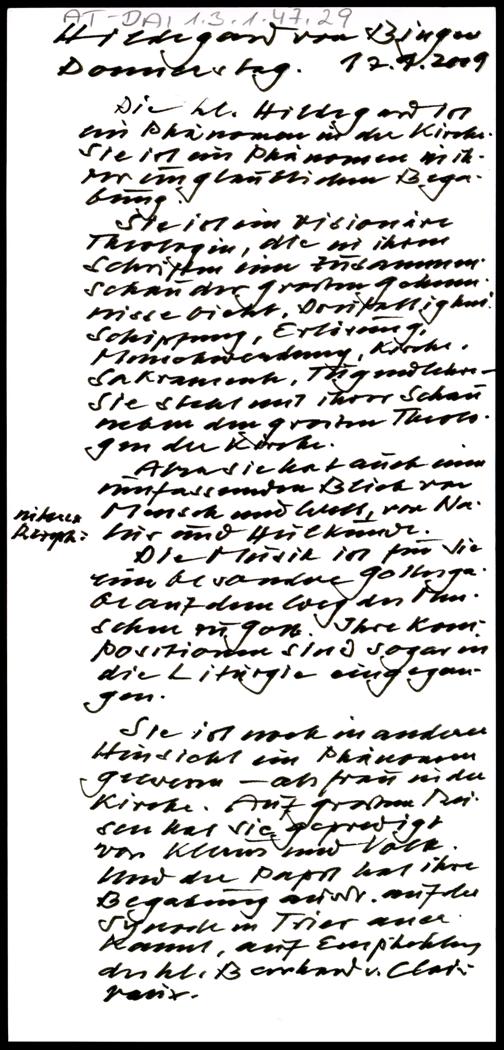 AT-DAI 1.3.1.47.29
Hildegard von Bingen
Donnerstag. 17.9.2009
Die hl. Hildegard ist
ein Phänomen in der Kirche.
Sie ist ein Phänomen in ih-
rer unglaublichen Bega-
bung.
Sie ist ein visionäre
Theologin, die in ihren
Schriften eine Zusammen-
schau der grossen Geheim-
nisse bietet, Dreifaltigkeit,
Schöpfung, Erlösung,
Menschwerdung, Kirche,
Sakramente, Tugendlehre –
Sie steht mit ihrer Schau
neben den grossen Theolo-
gen der Kirche.
Aber sie hat auch einen
umfassenden Blick von
Mensch und Welt, von Na-
tur und Heilkunde.
Die Musik ist für sie
eine besondere Gottesga-
be auf dem Weg des Men-
schen zu Gott. Ihre Kom-
positionen sind sogar in
die Liturgie eingegan-
gen.
Sie ist noch in anderer
Hinsicht ein Phänomen
gewesen – als Frau in der
Kirche. Auf grossen Rei-
sen hat sie gepredigt
vor Klerus und Volk.
Und der Papst hat ihre
Begabung auf der
Synode in Trier aner-
kannt, auf Empfehlung
des hl. Bernhard v. Clair-
vaux.